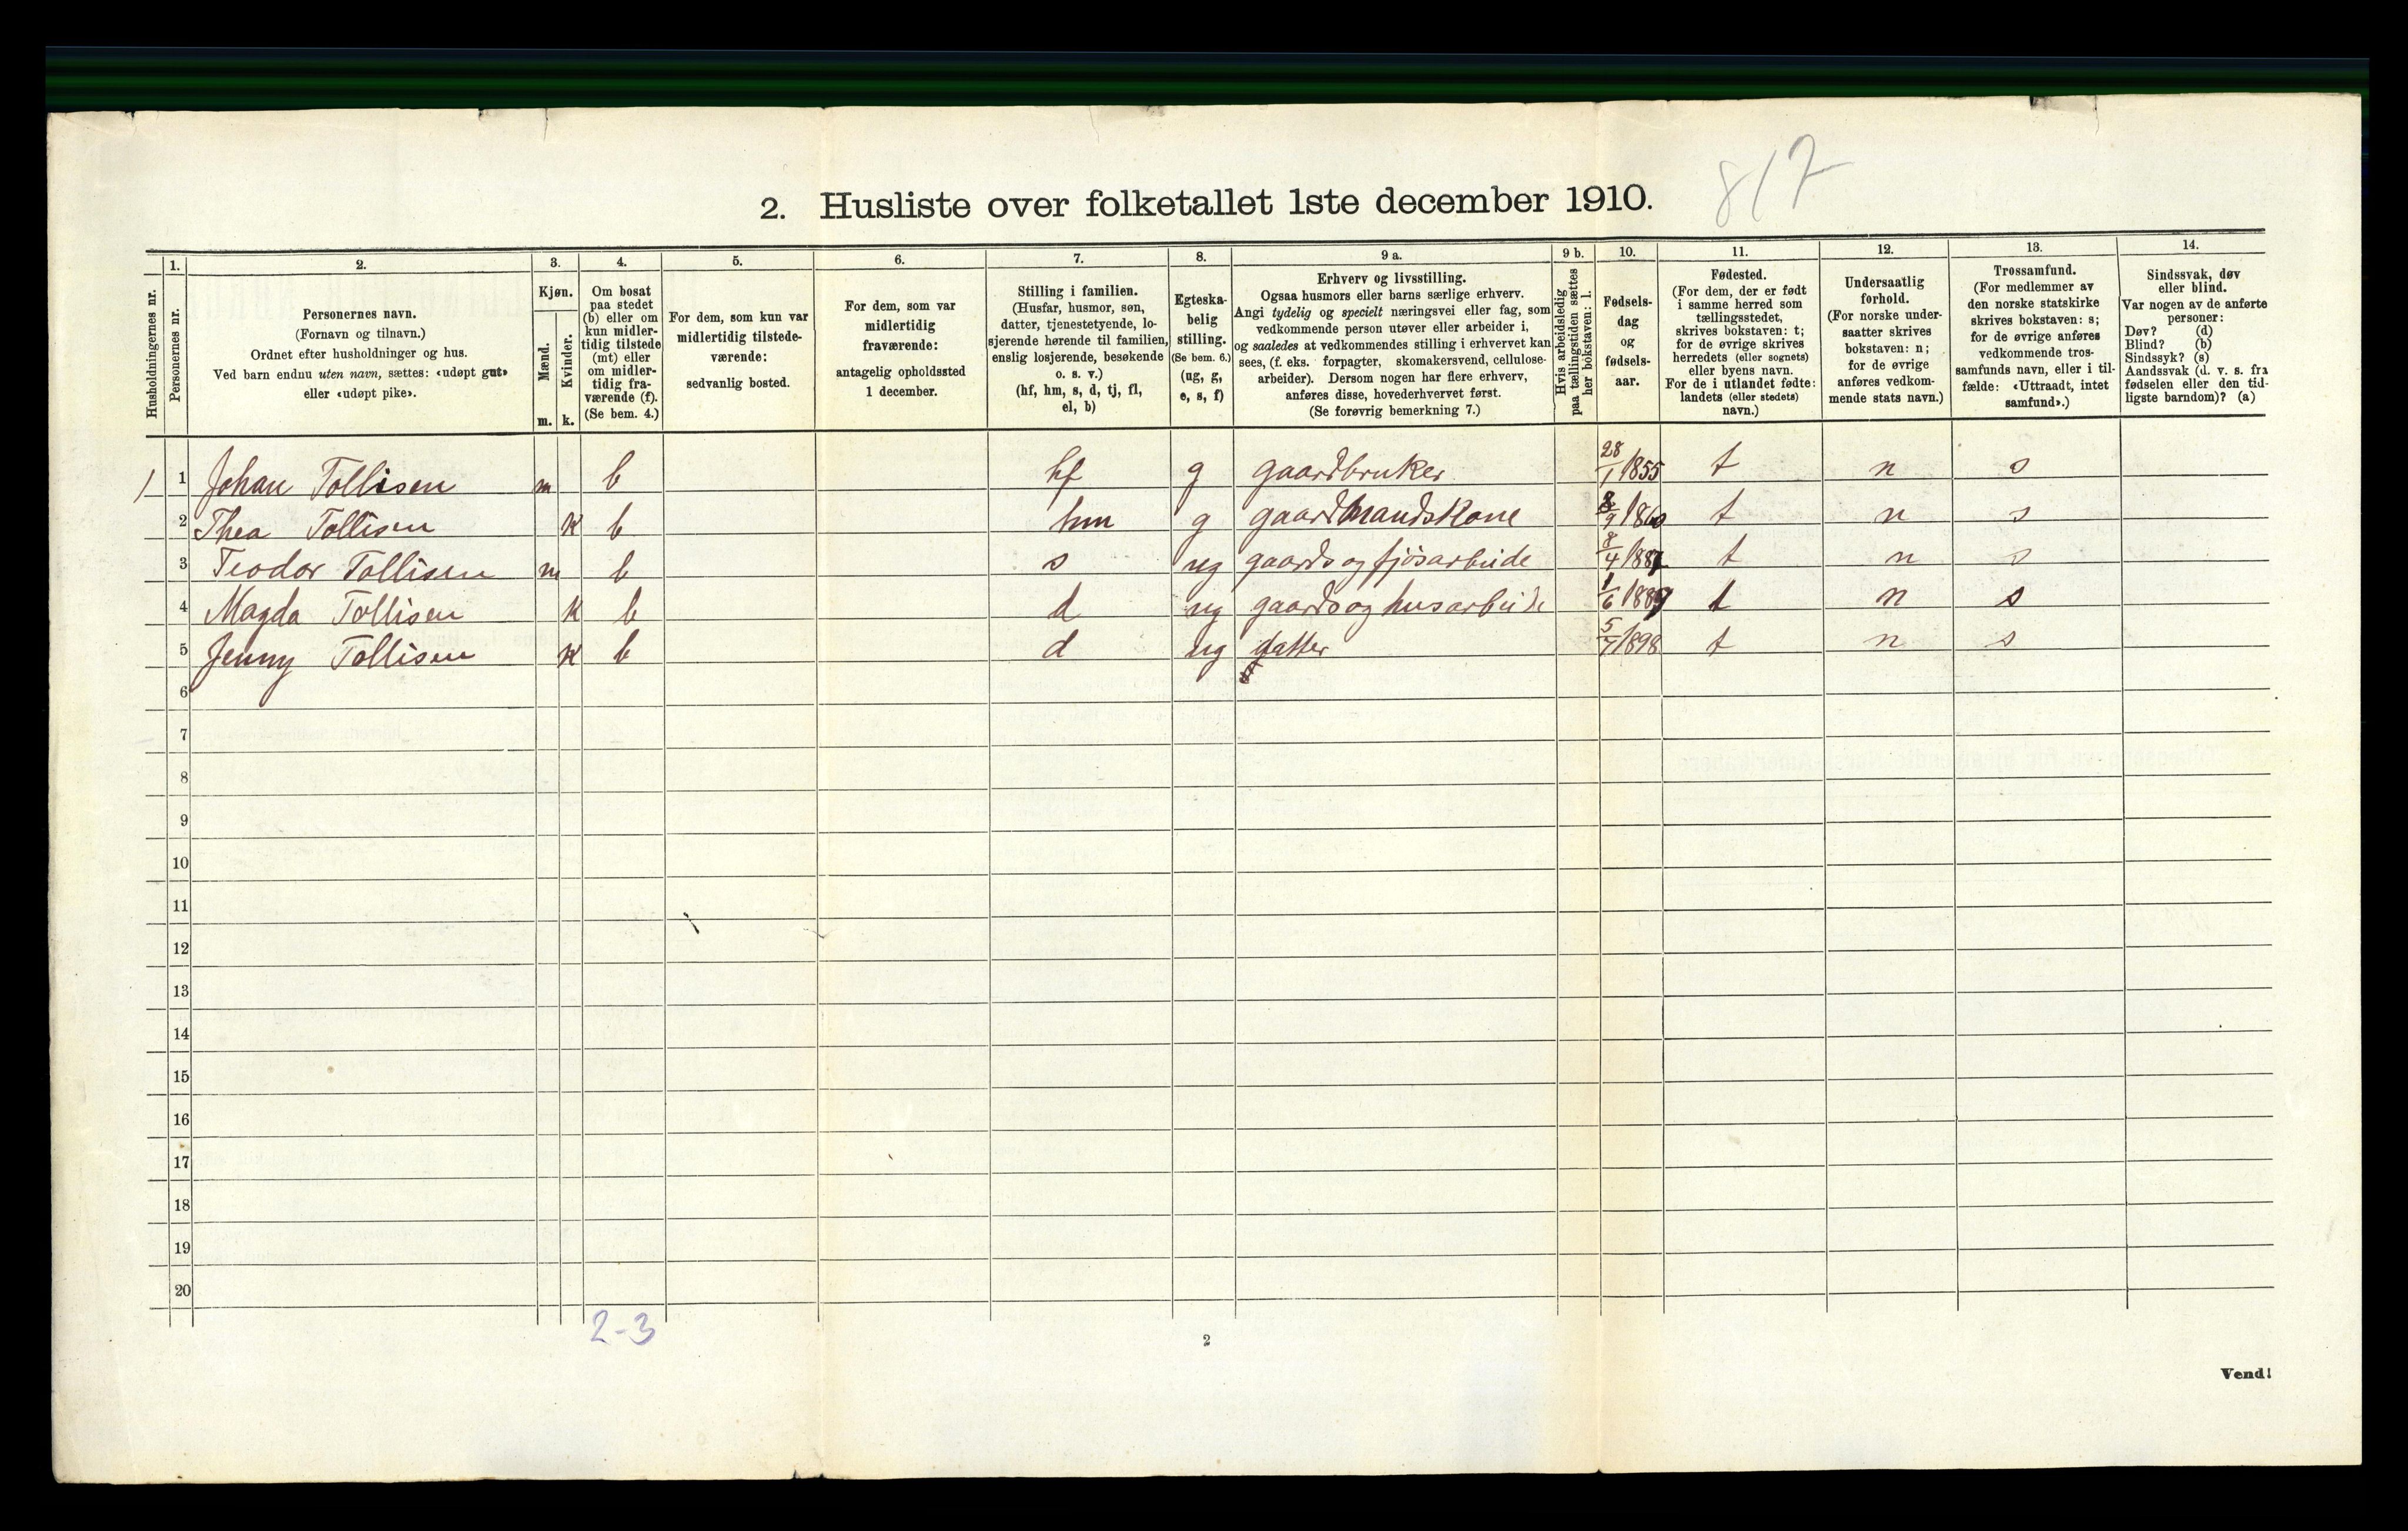 817
2. Husliste over folketallet 1ste december 1910.
Husholdningernes nr.
1. Personernes nr.
2. Personernes navn.
(Fornavn og tilnavn.)
Ordnet efter husholdninger og hus.
Ved barn endnu uten navn, sættes: «udøpt gut»
eller «udøpt pike».
3. Kjøn.
Mænd. m.
Kvinder. k.
4. Om bosat
paa stedet
(b) eller om
kun midler-
tidig tilstede
(mt) eller
om midler-
tidig fra-
værende (f).
(Se bem. 4.)
5. For dem, som kun var
midlertidig tilstede-
værende:
sedvanlig bosted.
6. For dem, som var
midlertidig
fraværende:
antagelig opholdssted
1 december.
7. Stilling i familien.
(Husfar, husmor, søn,
datter, tjenestetyende, lo-
sjerende hørende til familien,
enslig losjerende, besøkende
o. s. v.)
(hf, hm, s, d, tj, fl,
el, b)
8. Egteska-
belig
stilling.
(Se bem. 6.)
(ug, g,
e, s, f)
9 a. Erhverv og livsstilling.
Ogsaa husmors eller barns særlige erhverv.
Angi tydelig og specielt næringsvei eller fag, som
vedkommende person utøver eller arbeider i,
og saaledes at vedkommendes stilling i erhvervet kan
sees, (f. eks. forpagter, skomakersvend, cellulose-
arbeider). Dersom nogen har flere erhverv,
anføres disse, hovederhvervet først.
(Se forøvrig bemerkning 7.)
9 b. Hvis arbeidsledig
paa tællingstiden sættes
her bokstaven: l.
10. Fødsels-
dag
og
fødsels-
aar.
11. Fødested.
(For dem, der er født
i samme herred som
tællingsstedet,
skrives bokstaven: t;
for de øvrige skrives
herredets (eller sognets)
eller byens navn.
For de i utlandet fødte:
landets (eller stedets)
navn.)
12. Undersaatlig
forhold.
(For norske under-
saatter skrives
bokstaven: n;
for de øvrige
anføres vedkom-
mende stats navn.)
13. Trossamfund.
(For medlemmer av
den norske statskirke
skrives bokstaven: s;
for de øvrige anføres
vedkommende tros-
samfunds navn, eller i til-
fælde: «Uttraadt, intet
samfund».)
14. Sindssvak, døv
eller blind.
Var nogen av de anførte
personer:
Døv? (d)
Blind? (b)
Sindssyk? (s)
Aandssvak (d. v. s. fra
fødselen eller den tid-
ligste barndom)? (a)
1 1 Johan Tollisen m b hf g gaardbruker 28/1 1855 t n s
2 Thea Tollisen k b hm g gaardmandskone 8/9 1860 t n s
3 Teodor Tollisen m b s ug gaards og fjøsarbeide 8/4 1887 t n s
4 Magda Tollisen k b d ug gaards og husarbeide 1/6 1889 t n s
5 Jenny Tollisen k b d ug datter 5/7 1898 t n s
6
7
8
9
10
11
12
13
14
15
16
17
18
19
20
2-3
2
Vend!